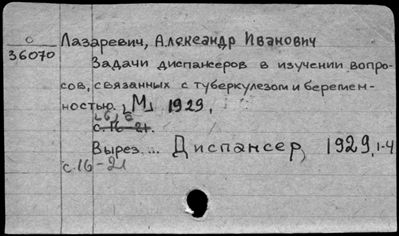 С
36070
Лазаревич, Александр Иванович
Задачи диспансеров в изучении вопро-
сов, связанных с туберкулезом и беремен-
ностью. М 1929,
с. 16-21.
Вырез... Диспансер, 1929, 1-4
с. 16-21